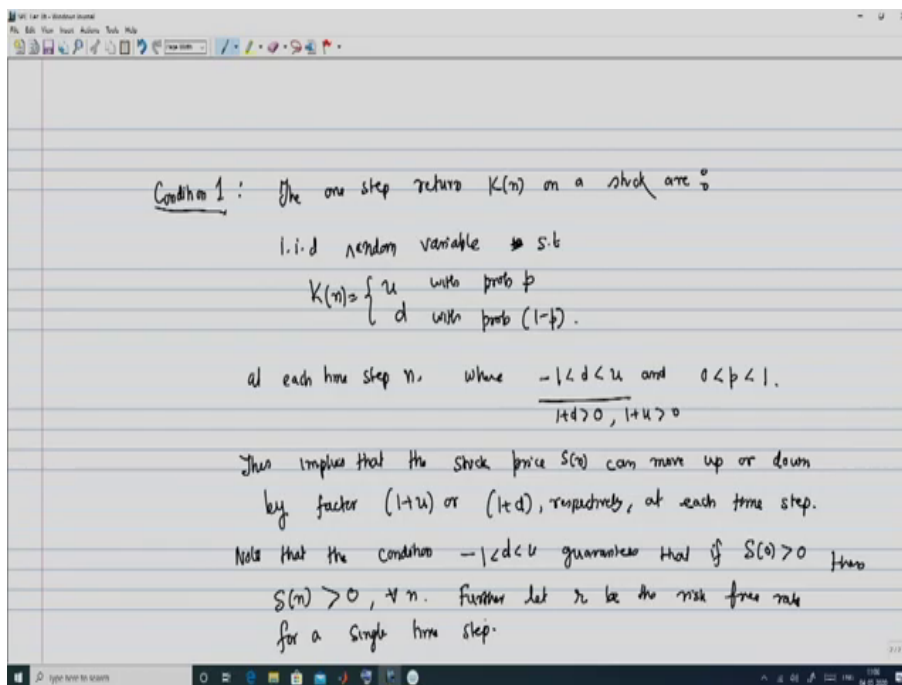 File Edit View Insert Actions Tools Help
Page Width
Condition 1 : The one step return K(n) on a stock are :
i.i.d random variable s.t
K(n) = { u with prob p
d with prob (1-p).
at each time step n, where -1<d<u and 0<p<1.
1+d>0, 1+u>0
This implies that the stock price S(n) can move up or down
by factor (1+u) or (1+d), respectively, at each time step.
Note that the condition -1<d<u guarantees that if S(0)>0 then
S(n) >0, ∀ n. Further let r be the risk free rate
for a single time step.
Type here to search